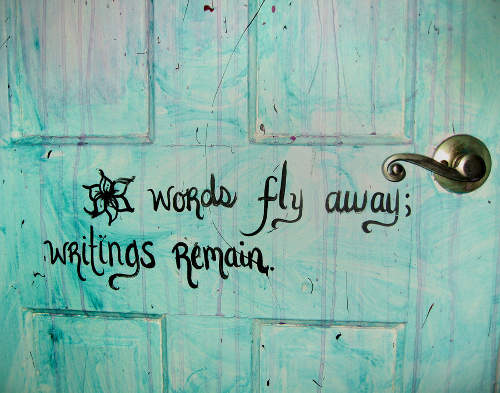 words fly away;
writings remain.